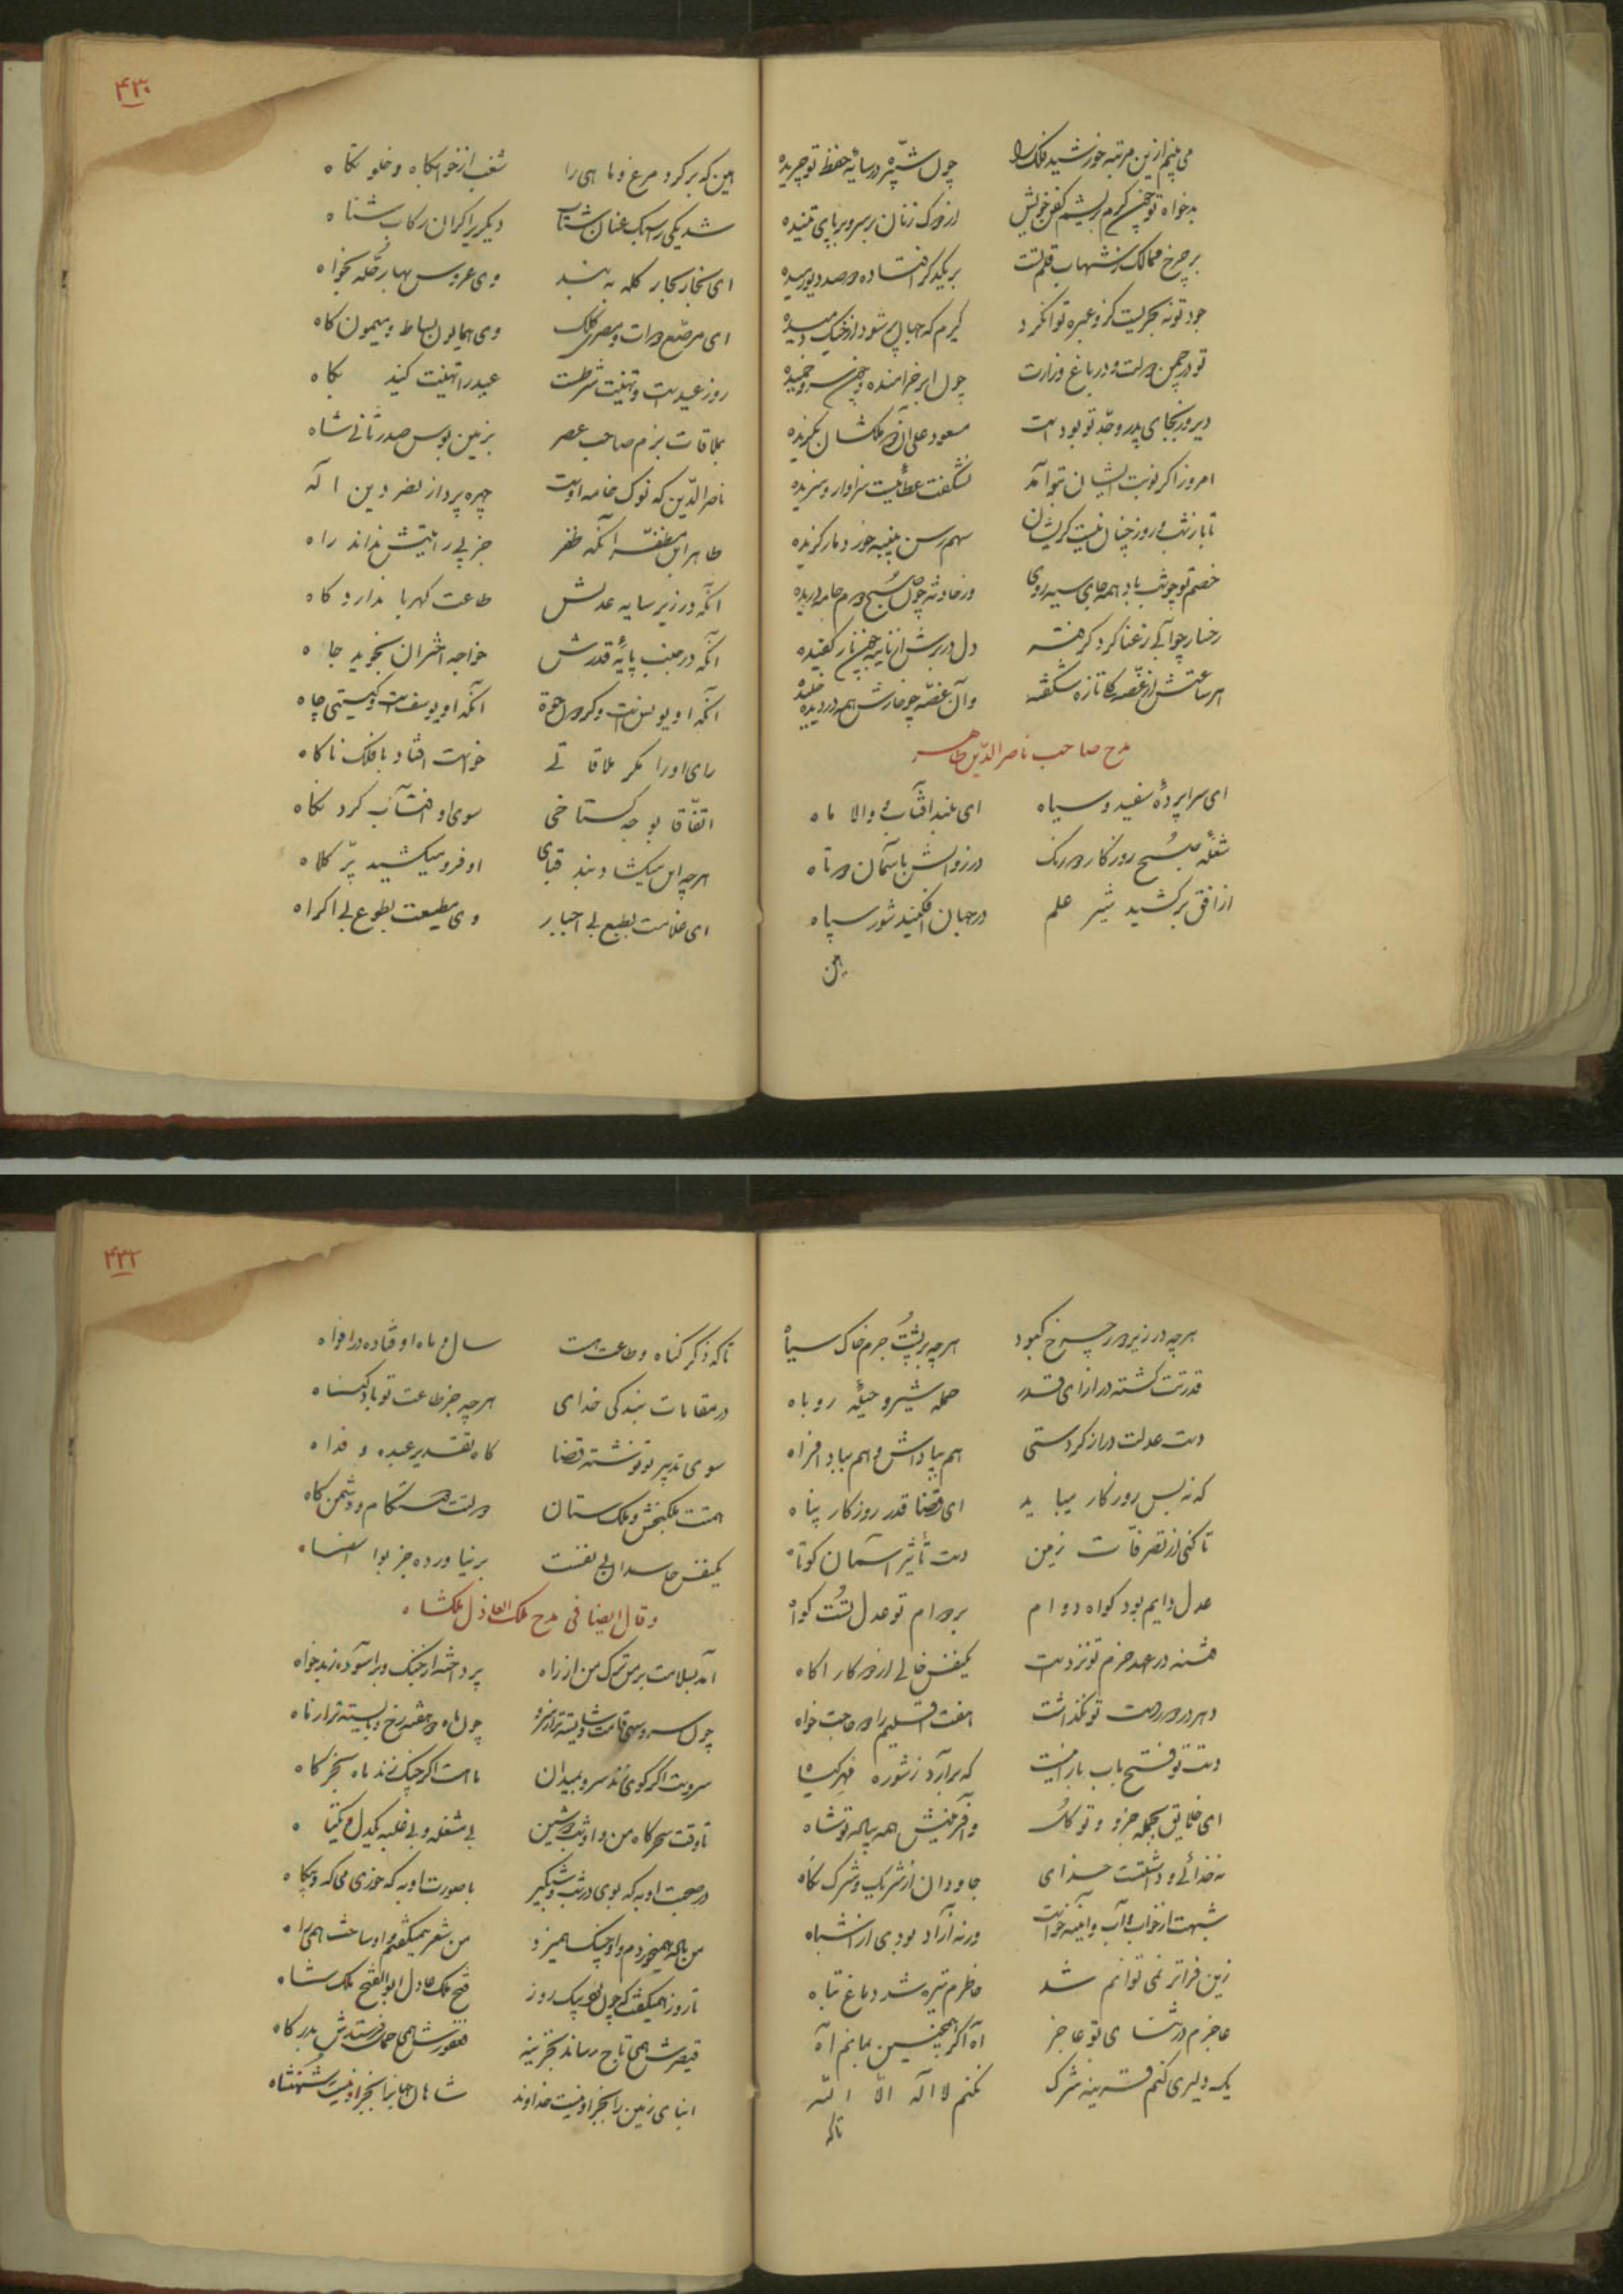 می‌بینم ازین مرتبه خورشید فلک را چون شبّپره در سایهٔ حفظ تو چریده
بدخواه تو چون کرم بریشم کفن خویش از دوک زنان بر سر و بر پای تنیده
بر چرخ ممالک ز شهاب قلم تست بر یکدگر افتاده دو صد دیو رمیده
جود تو نه بحریست کزو عبره توان کرد گیرم که جهان پر شود از خیک دمیده
تو در چمن دولت و در باغ وزارت چون ابر خرامنده و چون سرو چمیده
دیروز بجای پدر و جدّ تو بوداست مسعود علی آن ز ملکشان بگزیده
امروز اگر نوبت ایشان بتو آمد نشگفت عطائیست سزاوار و سزیده
تا باز شب و روز چنان نیست کز ایشان سهم رسن پیسه خورد مار گزیده
خصم تو چو شب باد همه جای سیه روی وز حادثه چون صبح دوم جامه دریده
رخسار چو آبی ز عنا گرد گرفته دل در برش از نایبه چون نار کفیده
هر ساعتش از غصه گلی تازه شکفته وآن غصّه چو خارش همه در دیده خلیده
مدح صاحب ناصر الدّین طاهر
ای سراپردهٔ سفید و سیاه ای بلند آفتاب و والا ماه
شعلهٔ صبح روزگار دورنگ در زد آتش بآسمان دوتاه
از افق برکشید شیر علم در جهان افکنید شور سپاه
هین
۴۳۰
هین که بر کرد مرغ و ماهی را شغب از خوابگاه و خلوتگاه
شد یکی را سبک عنان شتاب دیگری را گران رکاب شتاه
ای بخار بحار کله به بند وی عروس بهار حلّه بخواه
ای مرصّع دوات و مصری کلک وی همایون بساط و میمون گاه
روز عیدست و تهنیت شرطست عیدرا تهنیت کنید پگاه
بملاقات بزم صاحب عصر بزمین بوس صدر ثانی شاه
ناصر الدّین که نوک خامه اوست چهره پرداز نصر دین اله
طاهر ابن مظفّر آنکه ظفر جز پی رایتش نداند راه
آنکه در زیر سایه عدلش طاعت کهربا ندارد کاه
آنکه در جنب پایهٔ قدرش خواجه اختران نجوید جاه
آنکه او یونس است و گردون حوت آنکه او یوسفست و گیتی چاه
رای او را مگر ملاقاتی خواست افتاد با فلک ناگاه
اتفّاقا بوجه گستاخی سوی او آفتاب کرد نگاه
هرچه این میگشاد بند قبای او فرو میکشید پرّ کلاه
ای غلامت بطبع بی اجبار وی مطیعت بطوع بی اکراه
هرچه در زیر دور چرخ کبود هرچه بر پشت جرم خاک سیاه
قدرتت گشته در ازای قدر حمله شیر و حیلهٔ روباه
دست عدلت دراز کردستی هم بپاداش و هم بباد افراه
که نه بس روزگار میباید ای قضا قدر روزگار پناه
تا کنی از تصرفات زمین دست تأثیر آسمان کوتاه
عدل دایم بود گواه دوام بر دوام تو عدل تست گواه
فتنه در عهد حزم تو نزدست یکنفس خالی از دو کار آگاه
دهر در دور دست تو نگذاشت هفت اقلیم را دو حاجت خواه
دست تو فتح باب بارانیست که برآرد ز شوره مهر گیاه
ای خلایق بجمله جزو و تو کل وآفرینش همه پیاده تو شاه
نه خدائی و داشتت خدای جاودان از شریک و شرک نگاه
شبهت از خواب و آب و آینه خواست ورنه آزاد بودی از اشباه
زین فراتر نمی‌توانم شد خاطرم تیره شد دماغ تباه
عاجزم در ثنای تو عاجز آه اگر همچنین بمانم آه
یک دلیری کنم قرینه شرک نکنم لا اله الّا الله
تا که
۴۳۲
تا که ذکر گناه و طاعت هست سال و ماه اوفتاده در افواه
در مقامات بندگی خدای هرچه جز طاعت تو باد گناه
سوی تدبیر تو نوشته قضا گاه تقدیر عبده و فداه
همتت ملکبخش و ملک ستان دولتت دوستکام و دشمن کاه
یکنفس حاسدان بی نفست بر نیاورده جز بوا اسفاه
وقال ایضا فی مدح ملک العادل ملکشاه
آمد بسلامت بر من ترک من از راه پرداخته از جنگ و برآسوده ز بدخواه
چون سرو سهی قامت و شایسته تر از سرو چون ماه دوهفته رخ و بایسته تر از ماه
سرویست اگر گوی زند سرو بمیدان ماهست اگر چنگ زند ماه بخرگاه
تا وقت سحرگاه من و او شب دوشین بی مشغله و بی غلبه یکدل و یکتا
در صحبت او به که بوی در شب و شبگیر با صورت او به که خوری می گه و بیگاه
من باده همیخوردم و او چنگ همیزد من شعر همیگفتم و او ساخت همی راه
تا روز همیگفت که چون بود بیک روز فتح ملک عادل ابو الفتح ملک شاه
قیصرش همی تاج رساند بخزینه فغفورش همی حمل فرستد ش بدرگاه
ابنای زمین را بجز او نیست خداوند شاهان جهانرا بجز او نیست شهنشاه